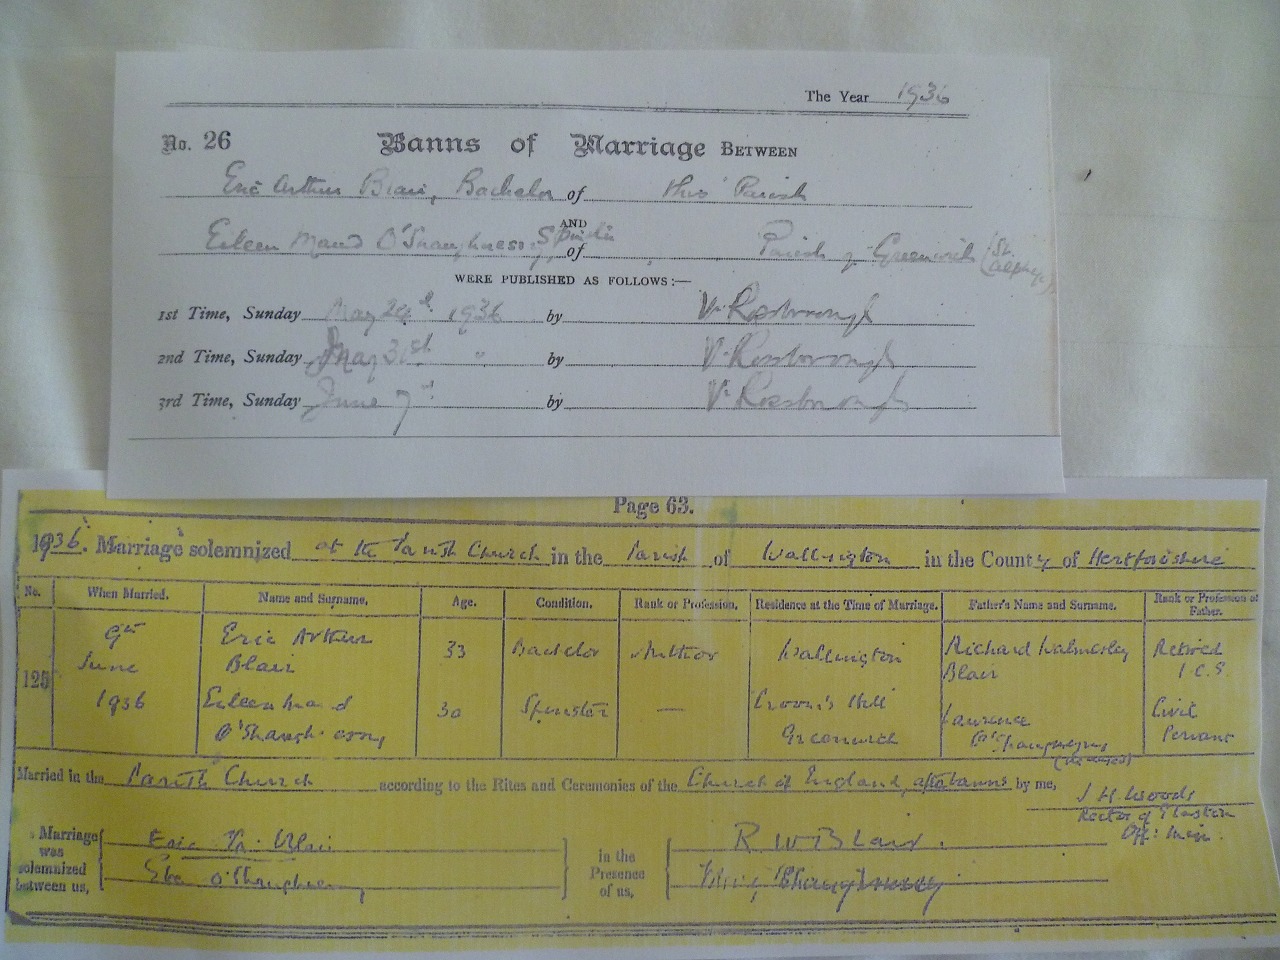 The Year 1936
No. 26 Banns of Marriage BETWEEN
Eric Arthur Blair, Bachelor of this Parish
AND
Eileen Maud O'Shaughnessy, Spinster of Parish of Greenwich (St. Alphege)
WERE PUBLISHED AS FOLLOWS:—
1st Time, Sunday May 24th 1936 by V. Rossborough
2nd Time, Sunday May 31st " by V. Rossborough
3rd Time, Sunday June 7th by V. Rossborough
Page 63.
1936. Marriage solemnized at the Parish Church in the Parish of Wallington in the County of Hertfordshire
No. When Married. Name and Surname. Age. Condition. Rank or Profession. Residence at the Time of Marriage. Father's Name and Surname. Rank or Profession of Father.
125 9th June 1936 Eric Arthur Blair 33 Bachelor Author Wallington Richard Walmesley Blair Retired I.C.S.
Eileen Maud O'Shaughnessy 30 Spinster — Croom's Hill Greenwich Laurence O'Shaughnessy (deceased) Civil Servant
Married in the Parish Church according to the Rites and Ceremonies of the Church of England, after banns by me,
J H Woods
Rector of Elaston
Off: Min.
Marriage was solemnized between us, Eric A. Blair
E O'Shaughnessy
in the Presence of us, R W Blair.
O'Shaughnessy